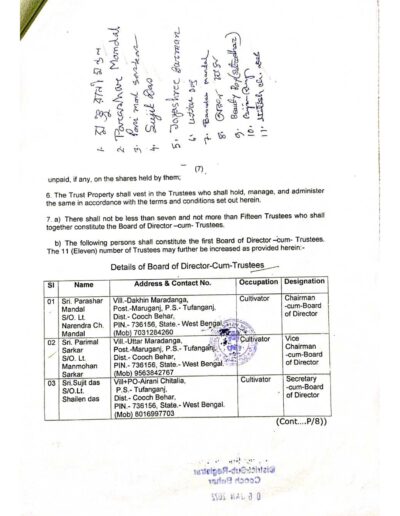 2. Parashar Mandal
3. Pari mal sarkar
4. Sujit Das
5. Jayashree barman
7. Bandan mandal
(7)
unpaid, if any, on the shares held by them;
6. The Trust Property shall vest in the Trustees who shall hold, manage, and administer
the same in accordance with the terms and conditions set out herein.
7. a) There shall not be less than seven and not more than Fifteen Trustees who shall
together constitute the Board of Director –cum- Trustees.
b) The following persons shall constitute the first Board of Director –cum- Trustees.
The 11 (Eleven) number of Trustees may further be increased as provided herein:-
Details of Board of Director-Cum-Trustees
Sl Name Address & Contact No. Occupation Designation
01 Sri. Parashar Vill.-Dakhin Maradanga, Cultivator Chairman
Mandal Post.-Maruganj, P.S.- Tufanganj. -cum-Board
S/O. Lt. Dist.- Cooch Behar, of Director
Narendra Ch. PIN.- 736156, State.- West Bengal
Mandal (Mob) 7031284260
02 Sri. Parimal Vill.-Uttar Maradanga, Cultivator Vice
Sarkar Post.-Maruganj, P.S.- Tufanganj. Chairman
S/O. Lt. Dist.- Cooch Behar, -cum-Board
Manmohan PIN.- 736156, State.- West Bengal. of Director
Sarkar (Mob) 9563842767
03 Sri.Sujit das Vill+PO-Airani Chitalia, Cultivator Secretary
S/O.Lt. P.S.- Tufanganj, -cum-Board
Shailen das Dist.- Cooch Behar, of Director
PIN.- 736156, State.- West Bengal.
(Mob) 8016997703
(Cont....P/8))
District Sub-Registrar
Cooch Behar
0 6 JAN 2022